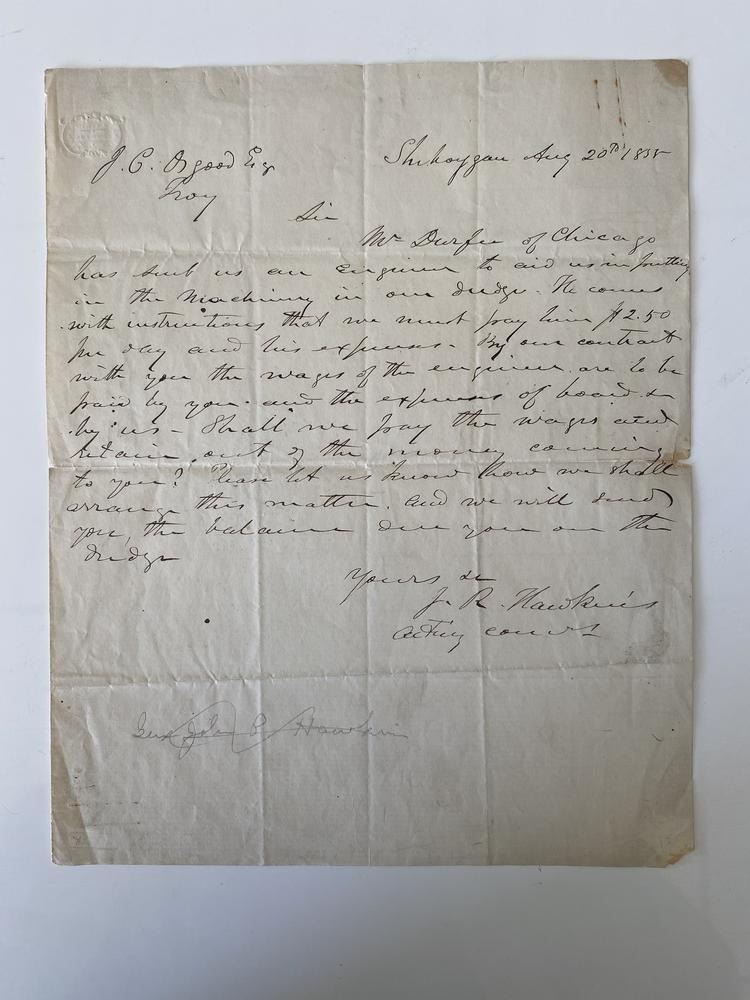 J. C. Osgood Esq
Troy
Sheboygan Aug 20th 1855
Sir
Mr Durfee of Chicago
has sent us an engineer to aid us in putting
in the Machinery in our dredge. He comes
with instructions that we must pay him $2.50
per day and his expenses. By our contract
with you the wages of the engineer are to be
paid by you and the expenses of board &
by us - Shall we pay the wages and
retain out of the money coming
to you? Please let us know how we shall
arrange this matter. and we will send
you, the balance due you on the
dredge
Yours &c
J. R. Hawkins
acting
John P. Hawkins